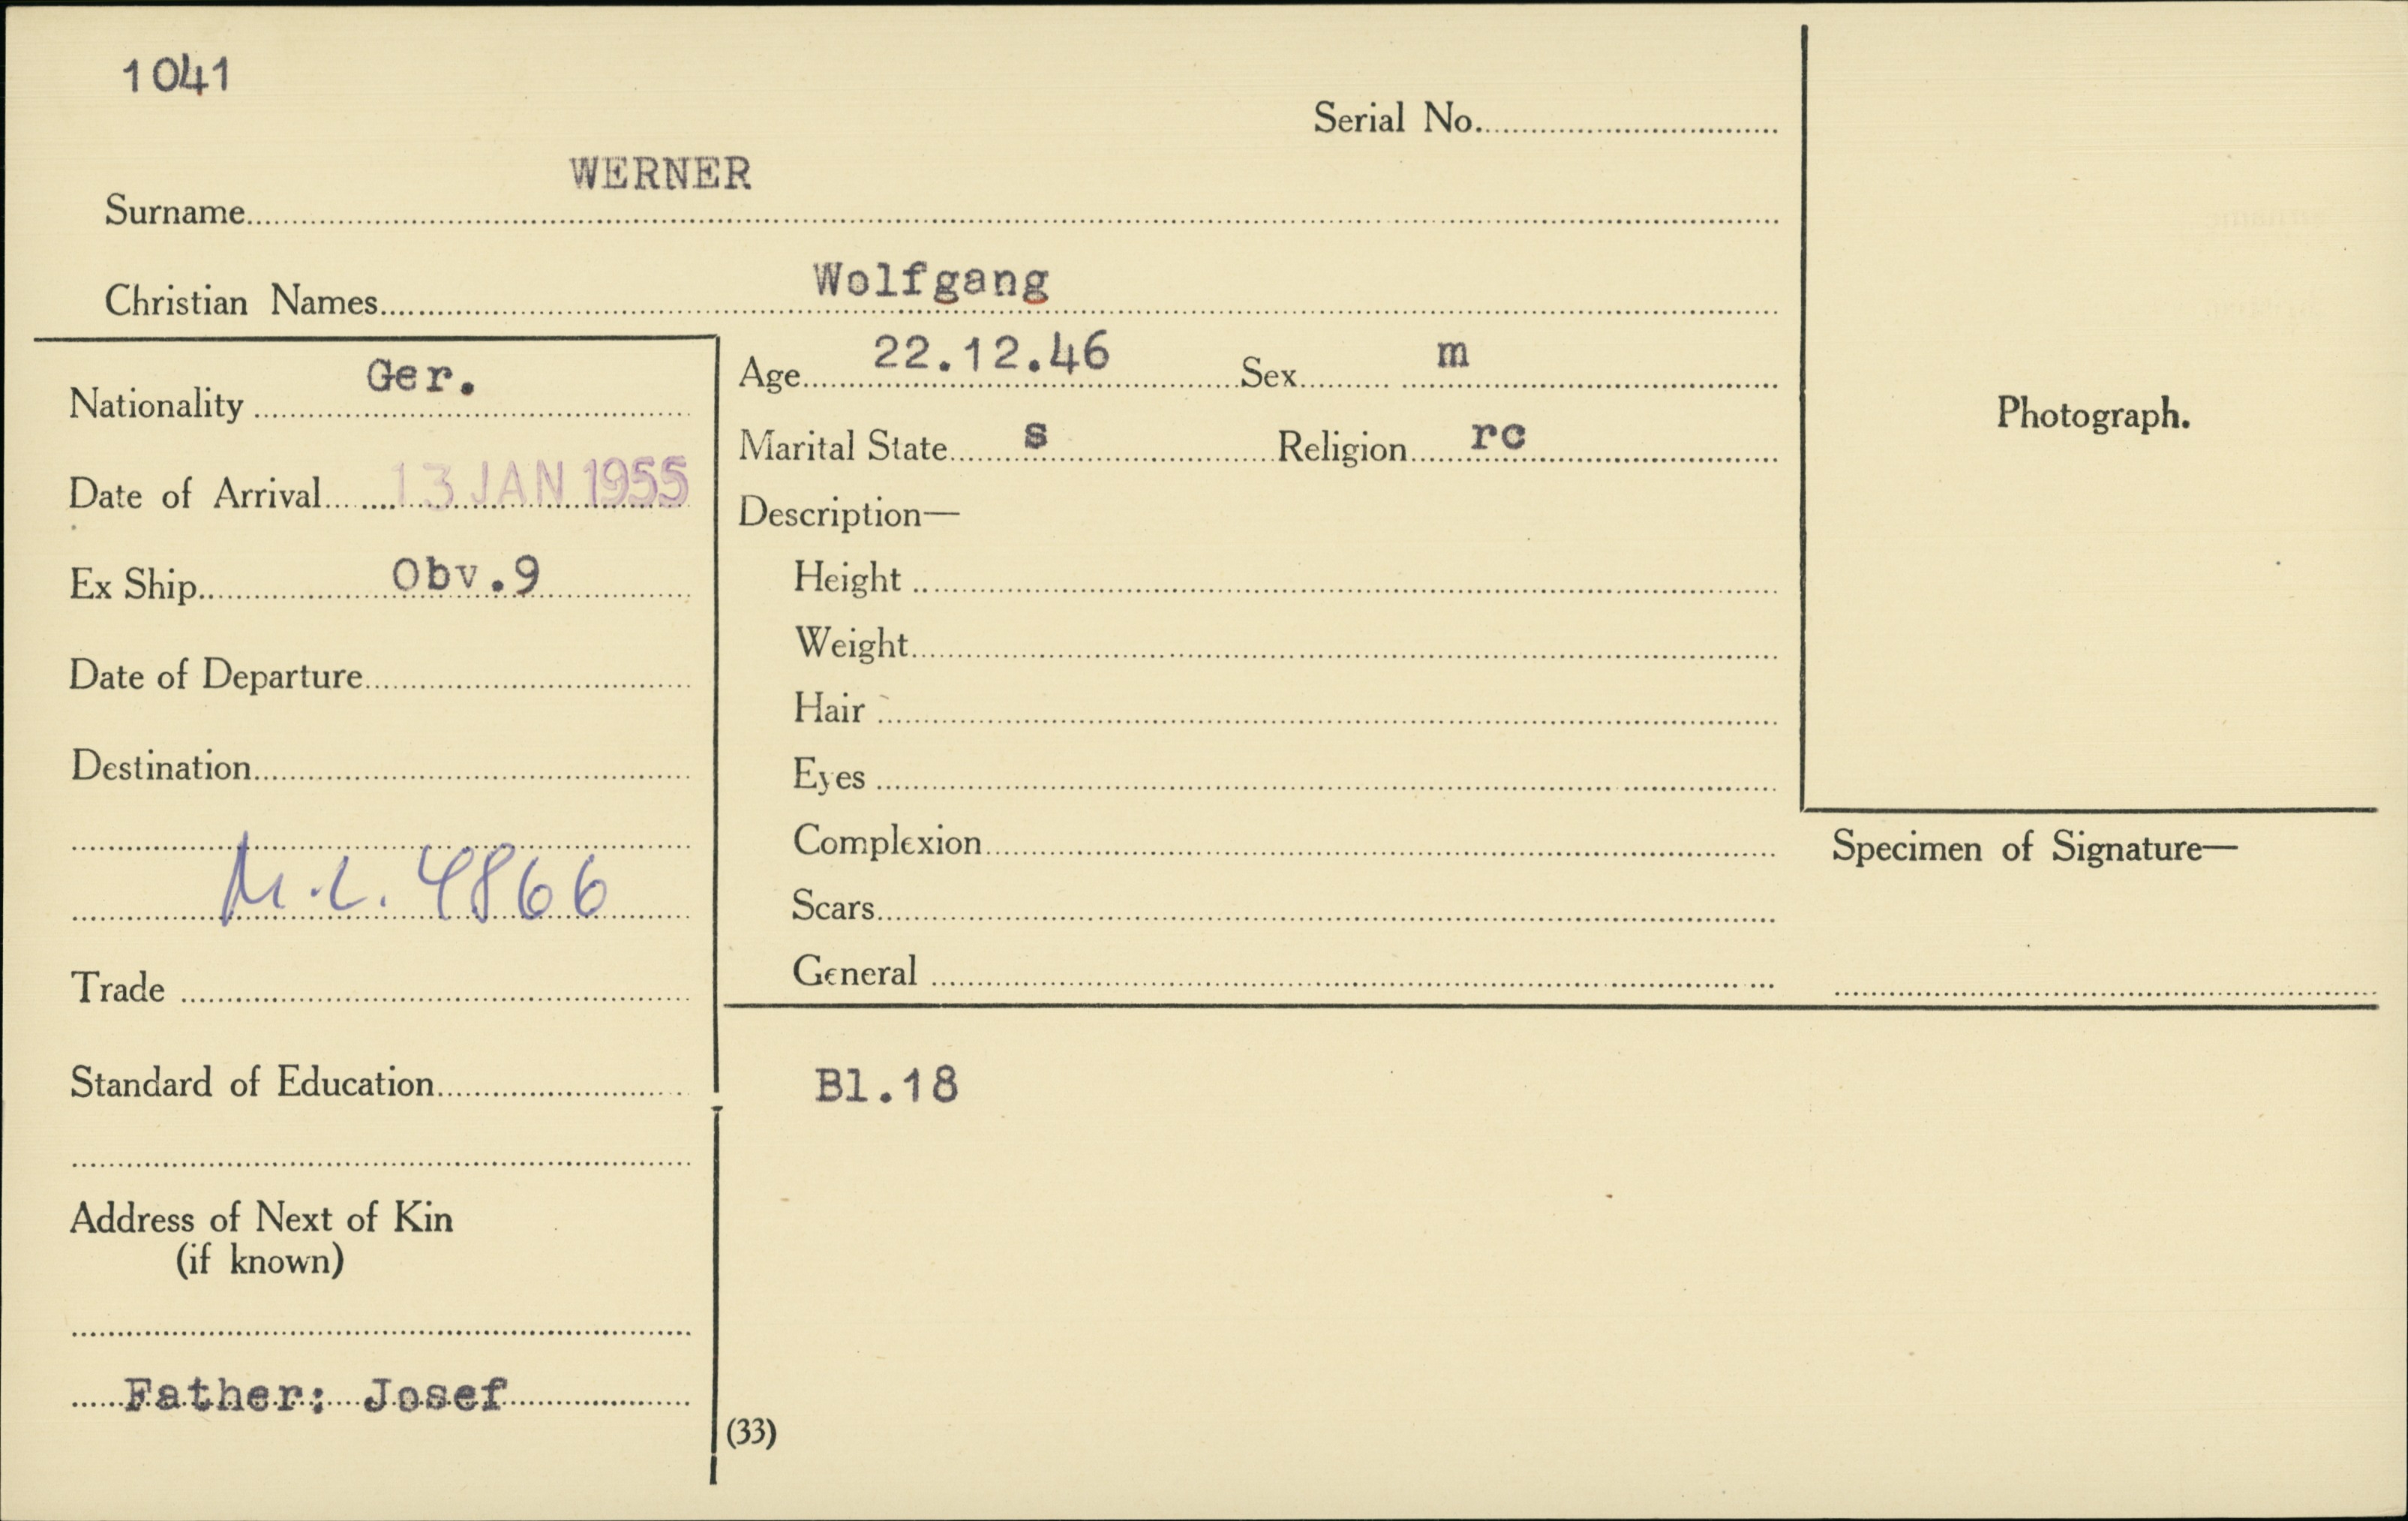 1041
Serial No.
WERNER
Surname
Wolfgang
Christian Names
Ger.
Nationality
Date of Arrival 13 JAN 1955
Ex Ship Obv.9
Date of Departure
Destination
M.L. 4866
Trade
Standard of Education
Address of Next of Kin
(if known)
Father: Josef
Age 22.12.46 Sex m
Marital State s Religion rc
Description—
Height
Weight
Hair
Eyes
Complexion
Scars
General
Bl.18
(33)
Photograph.
Specimen of Signature—